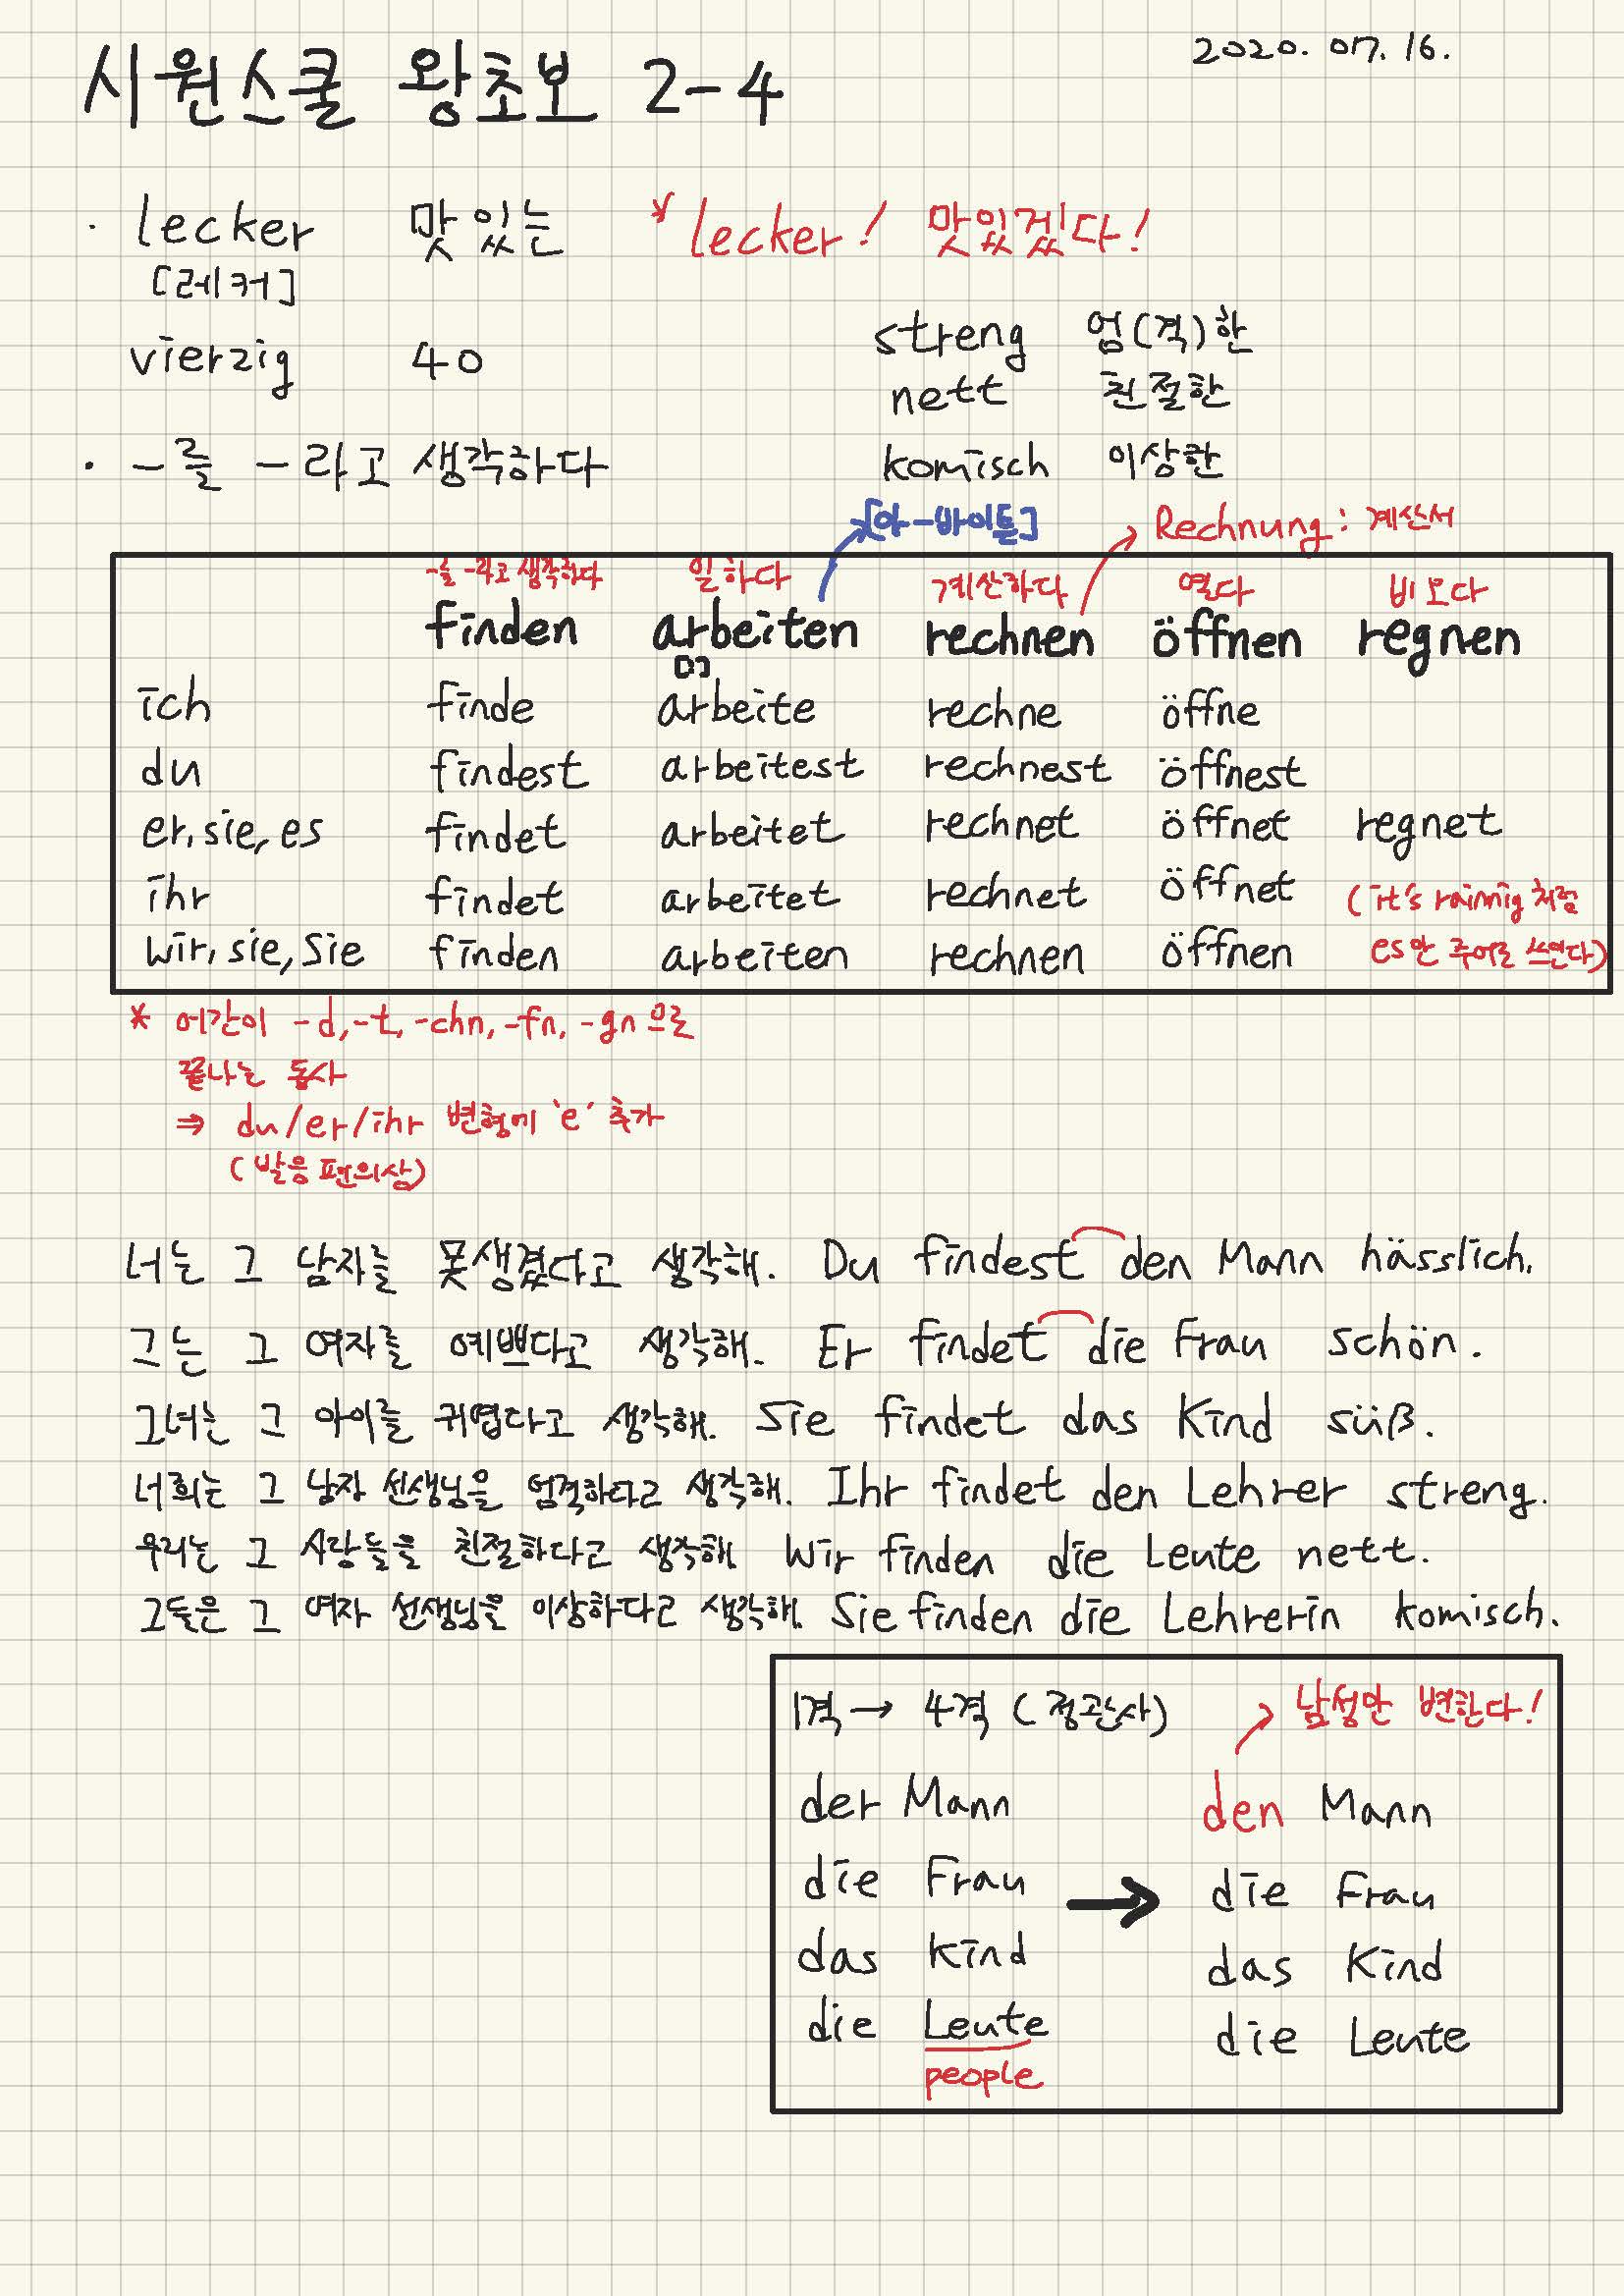 시원스쿨 왕초보 2-4
2020. 07. 16.
· lecker 맛있는 * lecker! 맛있겠다!
[레커]
vierzig 40
streng 엄(격)한
nett 친절한
· -를 -라고 생각하다
komisch 이상한
[아-바이튼]
Rechnung : 계산서
-를 -라고 생각하다 일하다 계산하다 열다 비 오다
finden arbeiten rechnen öffnen regnen
ich finde arbeite rechne öffne
du findest arbeitest rechnest öffnest
er, sie, es findet arbeitet rechnet öffnet regnet
ihr findet arbeitet rechnet öffnet (it's rainnig 처럼
wir, sie, Sie finden arbeiten rechnen öffnen es만 주어로 쓰인다)
* 어간이 -d, -t, -chn, -fn, -gn 으로
끝나는 동사
⇒ du/er/ihr 변형에 'e' 추가
(발음 편의상)
너는 그 남자를 못생겼다고 생각해. Du findest den Mann hässlich.
그는 그 여자를 예쁘다고 생각해. Er findet die Frau schön.
그녀는 그 아이를 귀엽다고 생각해. Sie findet das Kind süß.
너희는 그 남자 선생님을 엄격하다고 생각해. Ihr findet den Lehrer streng.
우리는 그 사람들을 친절하다고 생각해 Wir finden die Leute nett.
그들은 그 여자 선생님을 이상하다고 생각해. Sie finden die Lehrerin komisch.
1격 → 4격 (정관사) → 남성만 변한다!
der Mann den Mann
die Frau → die Frau
das Kind das Kind
die Leute die Leute
people